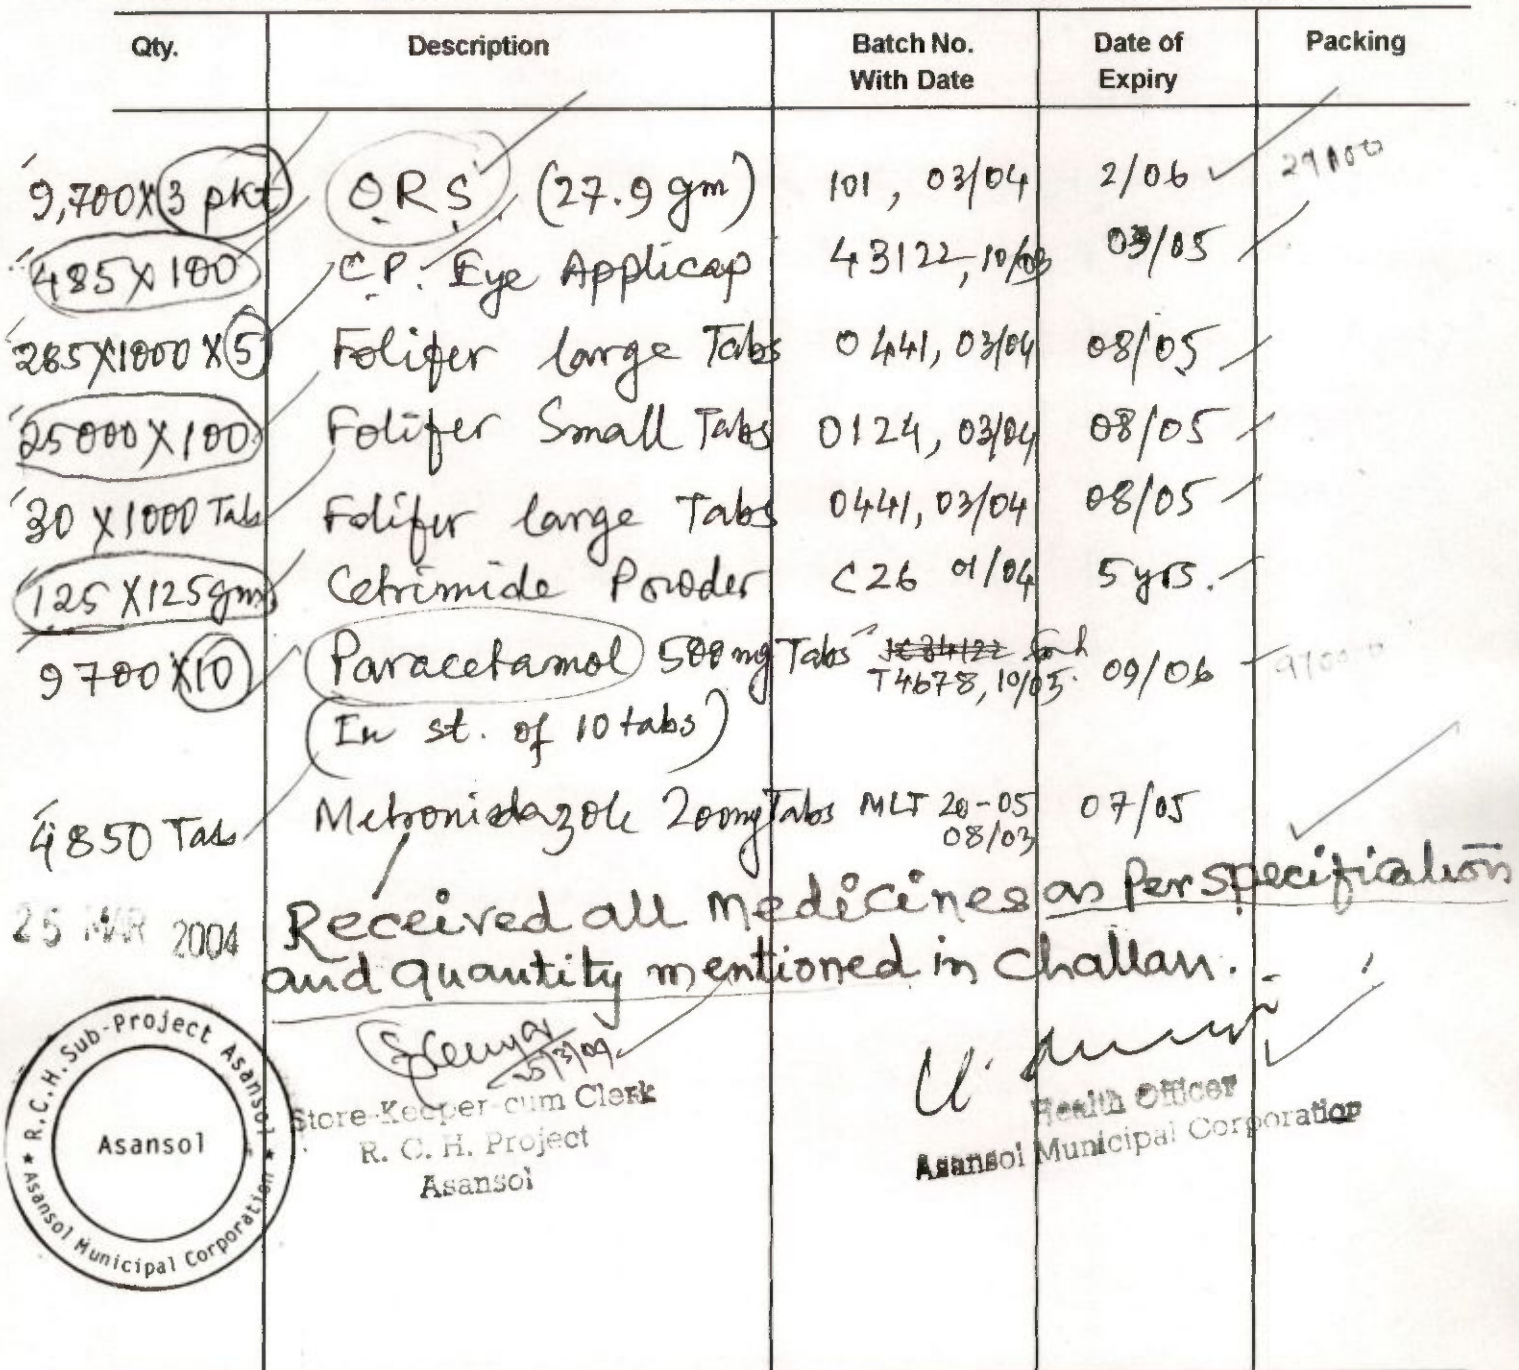 Qty. Description Batch No. With Date Date of Expiry Packing
9,700X3 pkt ORS (27.9 gm) 101, 03/04 2/06
485X100 C.P. Eye Applicap 43122, 10/03 03/05
285X1000X5 Folifer large Tabs 0441, 03/04 08/05
25000X100 Folifer Small Tabs 0124, 03/04 08/05
30 X1000 Tab Folifer large Tabs 0441, 03/04 08/05
125X125gm Cetrimide Powder C26 01/04 5 yrs.
9700X10 Paracetamol 500mg Tabs T4678, 10/03 09/06
(In st. of 10 tabs)
4850 Tab Metronidazole 200mg Tabs MLT 20-05 07/05
08/03
Received all medicines as Per specification
25 MAR 2004
and quantity mentioned in Challan.
25/3/04
Store-Keeper-cum Clerk
R. C. H. Project
Asansol
Health Officer
Asansol Municipal Corporation
★ R.C.H. Sub-Project Asansol ★
Asansol
Asansol Municipal Corporation